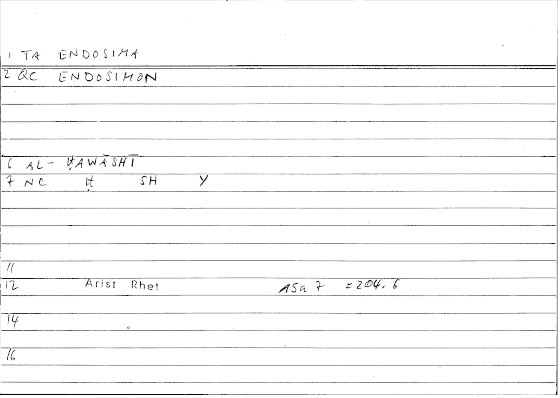 1 TA ENDOSIMA
2 QC ENDOSIMON
6 AL- ḤAWĀSHĪ
7 NC Ḥ SH Y
11
12 Arist Rhet 15a 7 = 204.6
14
16